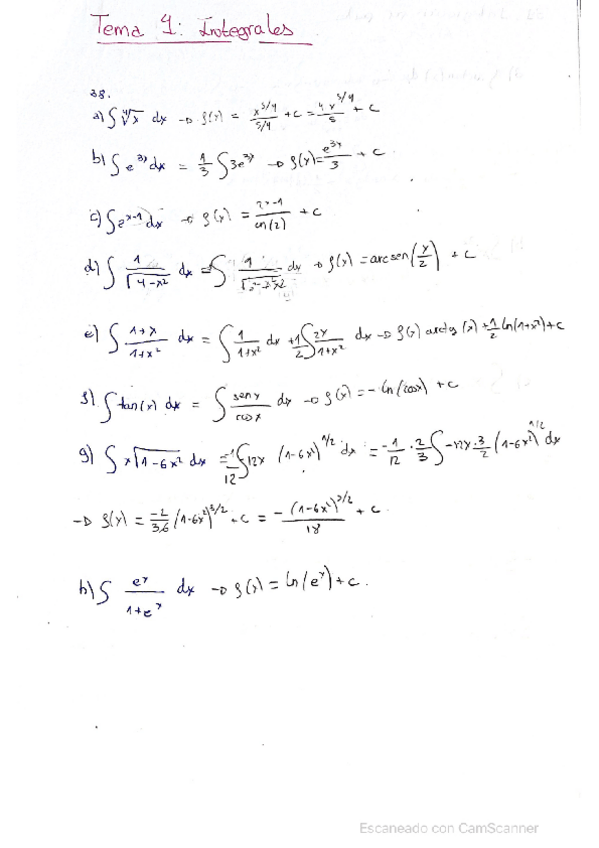 Tema 9: Integrales
38.
a) ∫ ∜x dx → f(x) = x^(5/4) / (5/4) + c = 4x^(5/4) / 5 + c
b) ∫ e^(3x) dx = 1/3 ∫ 3e^(3x) → f(x) = e^(3x) / 3 + c
c) ∫ 2^(x-1) dx → f(x) = 2^(x-1) / ln(2) + c
d) ∫ 1 / √(4-x²) dx = ∫ 1 dx → f(x) = arcsen(x/2) + c
e) ∫ (1+x) / (1+x²) dx = ∫ 1 / (1+x²) dx + 1/2 ∫ 2x / (1+x²) dx → f(x) arctg(x) + 1/2 ln(1+x²) + c
f) ∫ tan(x) dx = ∫ senx / cosx dx → f(x) = -ln(cosx) + c
g) ∫ x√(1-6x²) dx = -1/12 ∫ 12x (1-6x²)^(1/2) dx = -1/12 · 2/3 ∫ -12x · 3/2 (1-6x²)^(1/2) dx
→ f(x) = -2/36 (1-6x²)^(3/2) + c = - (1-6x²)^(3/2) / 18 + c
h) ∫ e^x / (1+e^x) dx → f(x) = ln(e^x) + c.
Escaneado con CamScanner